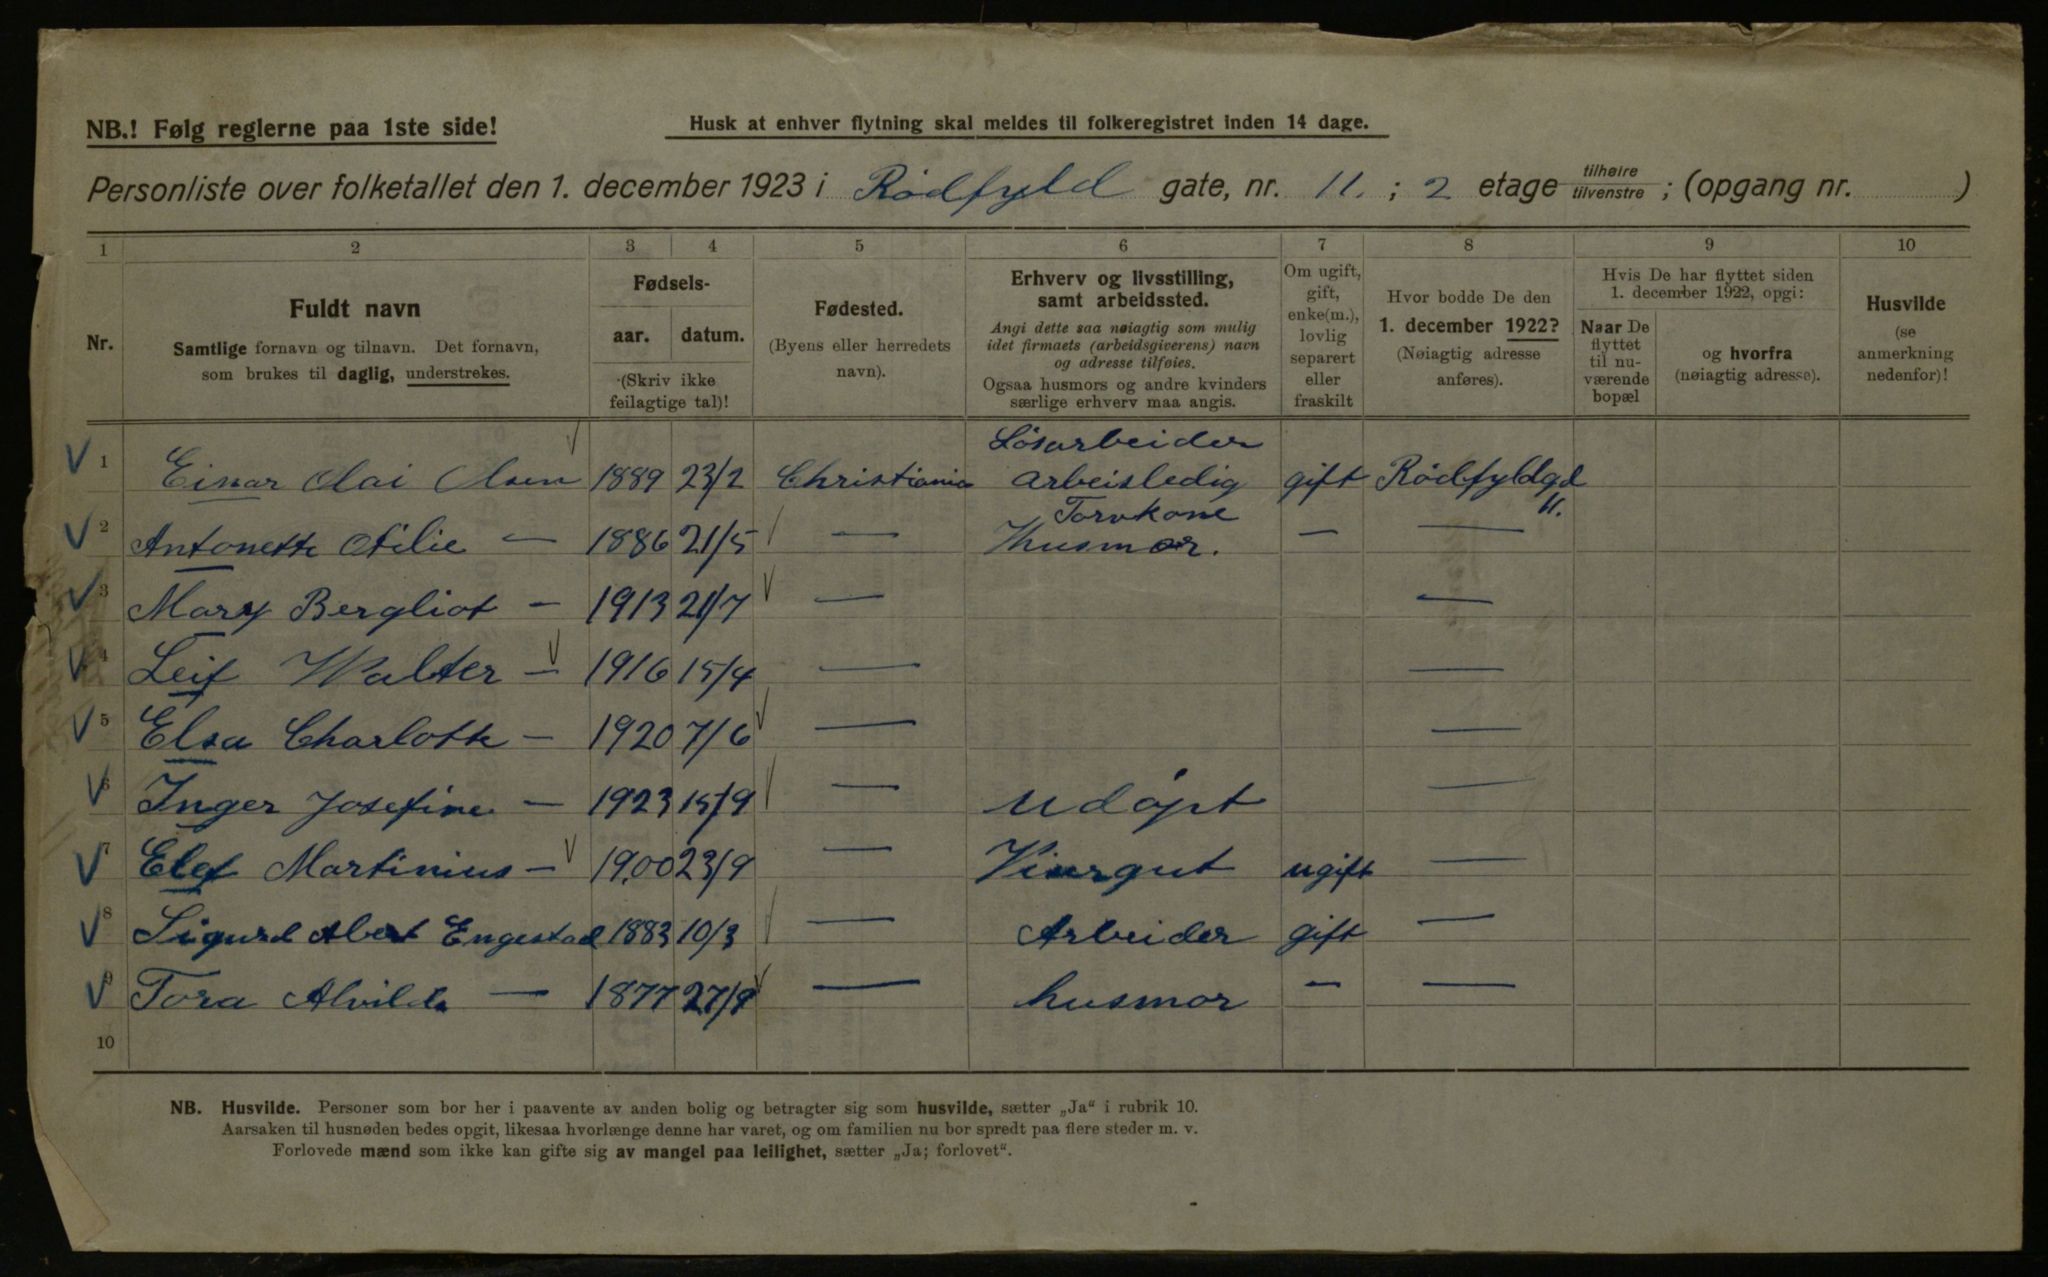 NB.! Følg reglerne paa 1ste side!
Husk at enhver flytning skal meldes til folkeregistret inden 14 dage.
Personliste over folketallet den 1. december 1923 i Rødfyld gate, nr. 11. ; 2 etage tilhøire tilvenstre ; (opgang nr. )
1 2 3 4 5 6 7 8 9 10
Nr.
Fuldt navn
Samtlige fornavn og tilnavn. Det fornavn,
som brukes til daglig, understrekes.
Fødsels-
aar. datum.
(Skriv ikke
feilagtige tal)!
Fødested.
(Byens eller herredets
navn).
Erhverv og livsstilling,
samt arbeidssted.
Angi dette saa nøiagtig som mulig
idet firmaets (arbeidsgiverens) navn
og adresse tilføies.
Ogsaa husmors og andre kvinders
særlige erhverv maa angis.
Om ugift,
gift,
enke(m.),
lovlig
separert
eller
fraskilt
Hvor bodde De den
1. december 1922?
(Nøiagtig adresse
anføres).
Hvis De har flyttet siden
1. december 1922, opgi:
Naar De
flyttet
til nu-
værende
bopæl
og hvorfra
(nøiagtig adresse).
Husvilde
(se
anmerkning
nedenfor)!
Løsarbeider
1 Einar Olai Olsen 1889 23/2 Christiania arbeisledig gift Rødfyldgd
11.
Torvkone
2 Antonette Otilie — 1886 21/5 — Husmor. — —
3 Mary Bergliot — 1913 21/7 — —
4 Leif Walter — 1916 15/4 — —
5 Elsa Charlotte — 1920 7/6 — —
6 Inger Josefine — 1923 15/9 — udøpt —
7 Elef Martinius — 1900 23/9 — Visergut ugift —
8 Sigurd Albert Engestad 1883 10/3 — Arbeider gift —
9 Tora Alvilde — 1877 27/9 — husmor — —
10
NB. Husvilde. Personer som bor her i paavente av anden bolig og betragter sig som husvilde, sætter „Ja“ i rubrik 10.
Aarsaken til husnøden bedes opgit, likesaa hvorlænge denne har varet, og om familien nu bor spredt paa flere steder m. v.
Forlovede mænd som ikke kan gifte sig av mangel paa leilighet, sætter „Ja; forlovet“.